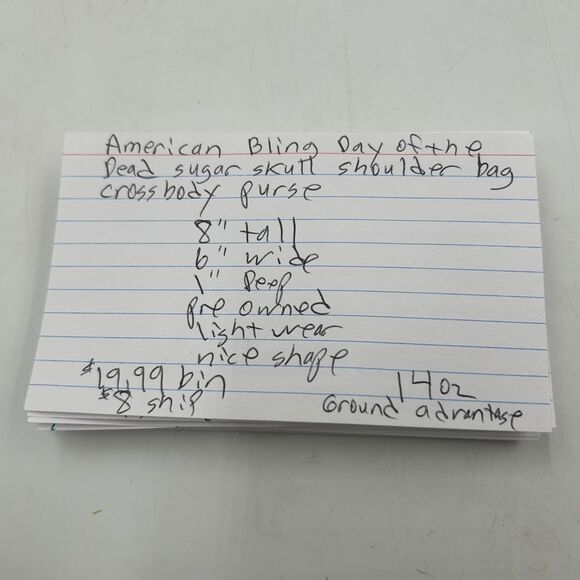 American Bling Day of the
Dead sugar skull shoulder bag
crossbody purse
8" tall
6" wide
1" Deep
pre owned
light wear
nice shape
$19.99 bin
$8 ship
14oz
Ground advantage